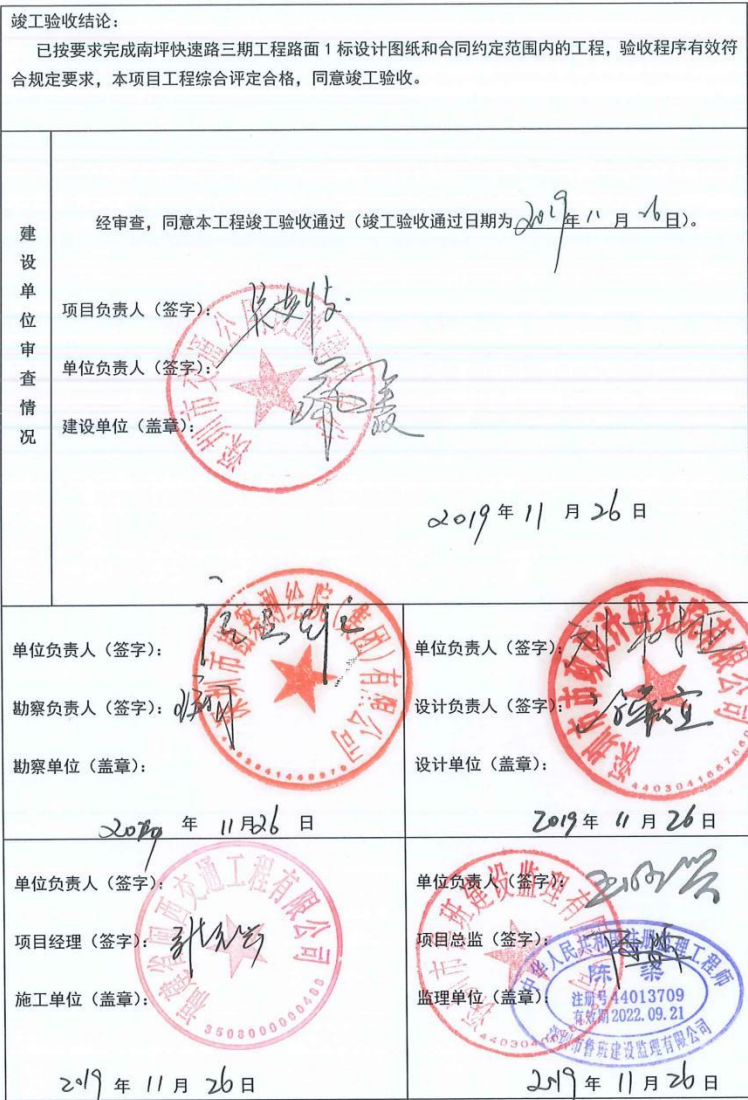 竣工验收结论：
已按要求完成南坪快速路三期工程路面 1 标设计图纸和合同约定范围内的工程，验收程序有效符
合规定要求，本项目工程综合评定合格，同意竣工验收。
建设单位审查情况
经审查，同意本工程竣工验收通过（竣工验收通过日期为 2019 年 11 月 26 日）。
项目负责人（签字）：
单位负责人（签字）：
建设单位（盖章）：
深圳市交通公用设施建设
2019 年 11 月 26 日
单位负责人（签字）：
勘察负责人（签字）：
勘察单位（盖章）：
深圳市勘察测绘院（集团）有限公司
2019 年 11 月 26 日
单位负责人（签字）：
设计负责人（签字）：
设计单位（盖章）：
深圳市市政设计研究院有限公司
2019 年 11 月 26 日
单位负责人（签字）：
项目经理（签字）：
施工单位（盖章）：
福建省闽西交通工程有限公司
2019 年 11 月 26 日
单位负责人（签字）：
项目总监（签字）：
监理单位（盖章）：
深圳市鲁班建设监理有限公司
中华人民共和国注册监理工程师
陈黎
注册号 44013709
有效期 2022.09.21
深圳市鲁班建设监理有限公司
2019 年 11 月 26 日